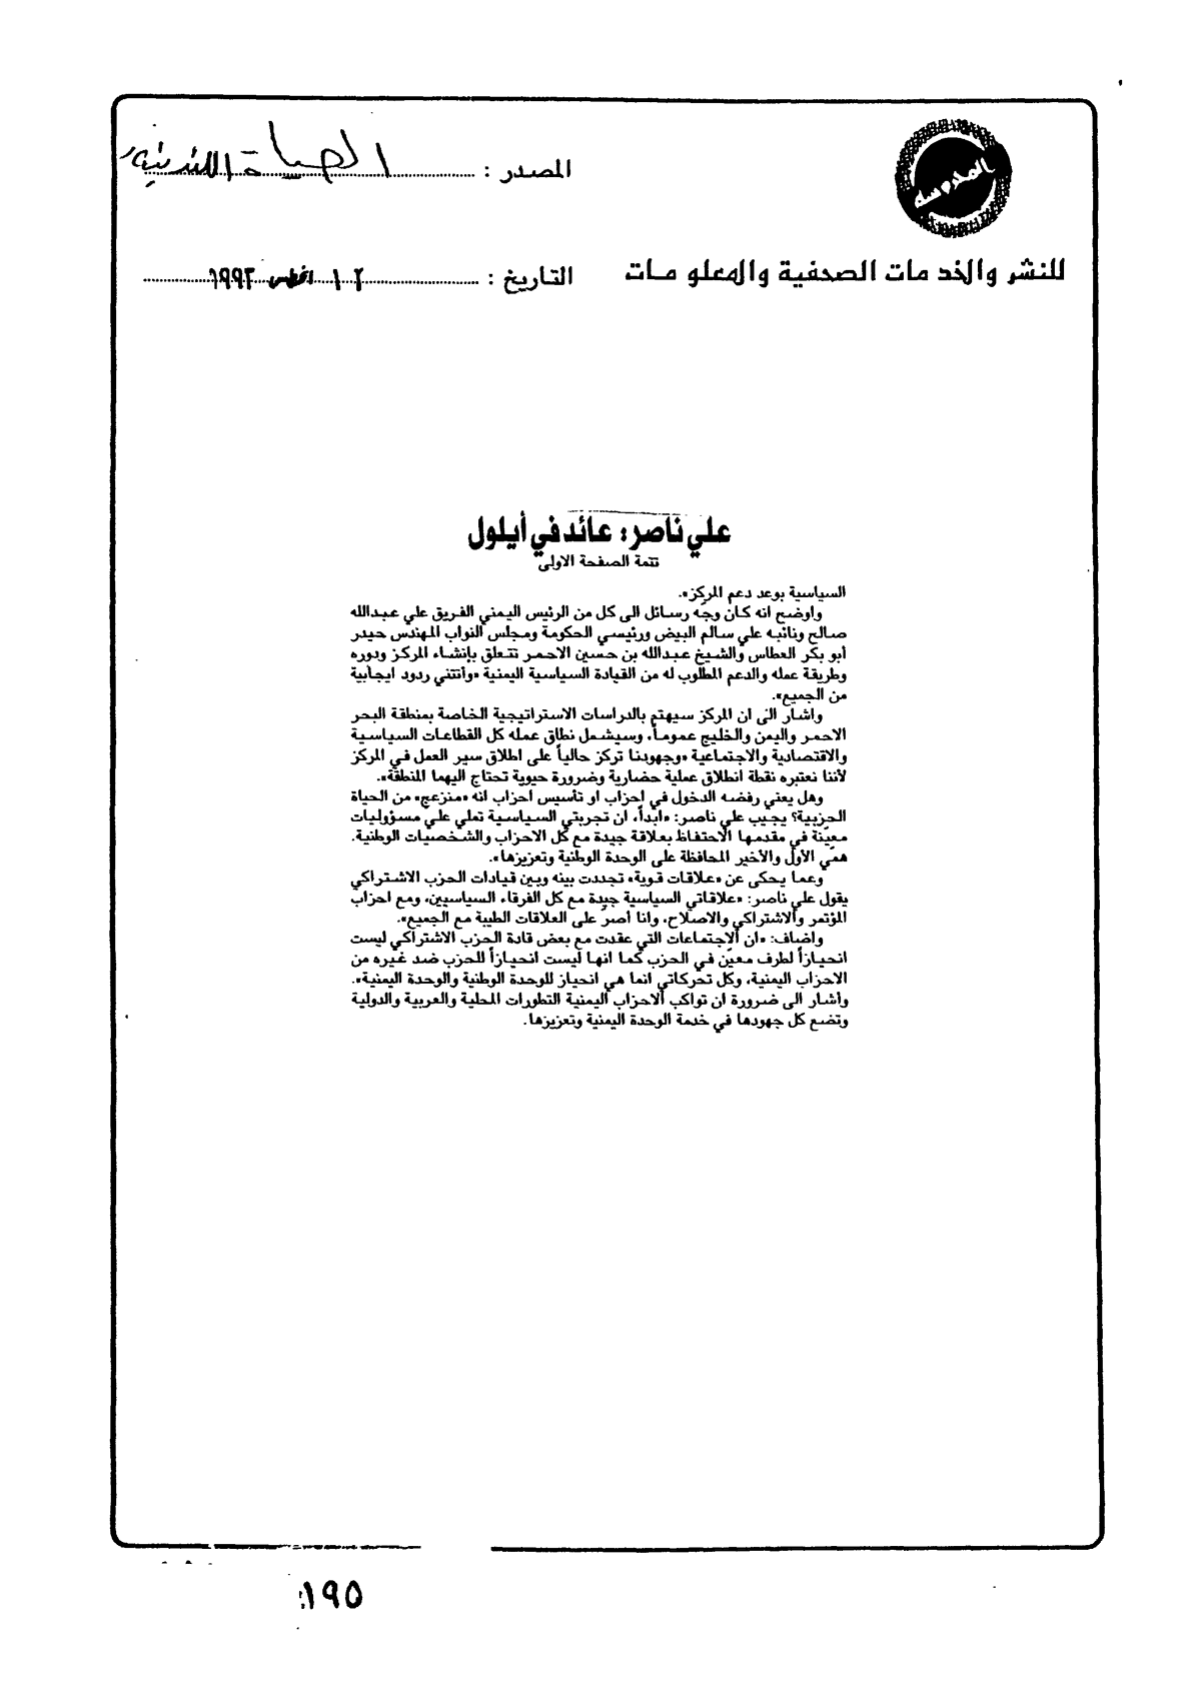 المدروسة
المصدر : الحياة اللندنية
للنشر والخدمات الصحفية والمعلومات
التاريخ : ١٢ اغسطس ١٩٩٢
علي ناصر: عائد في أيلول
تتمة الصفحة الاولى
السياسية بوعد دعم المركز».
واوضح انه كان وجّه رسائل الى كل من الرئيس اليمني الفريق علي عبدالله
صالح ونائبه علي سالم البيض ورئيسي الحكومة ومجلس النواب المهندس حيدر
ابو بكر العطاس والشيخ عبدالله بن حسين الاحمر تتعلق بإنشاء المركز ودوره
وطريقة عمله والدعم المطلوب له من القيادة السياسية اليمنية «وأتتني ردود ايجابية
من الجميع».
واشار الى ان المركز سيهتم بالدراسات الاستراتيجية الخاصة بمنطقة البحر
الاحمر واليمن والخليج عموماً، وسيشمل نطاق عمله كل القطاعات السياسية
والاقتصادية والاجتماعية «وجهودنا تركز حالياً على اطلاق سير العمل في المركز
لأننا نعتبره نقطة انطلاق عملية حضارية وضرورة حيوية تحتاج اليهما المنطقة».
وهل يعني رفضه الدخول في احزاب او تأسيس احزاب انه «منزعج» من الحياة
الحزبية؟ يجيب علي ناصر: «ابداً، ان تجربتي السياسية تملي عليّ مسؤوليات
معيّنة في مقدمها الاحتفاظ بعلاقة جيدة مع كل الاحزاب والشخصيات الوطنية.
همّي الأول والأخير المحافظة على الوحدة الوطنية وتعزيزها».
وعما يحكى عن «علاقات قوية» تجددت بينه وبين قيادات الحزب الاشتراكي
يقول علي ناصر: «علاقاتي السياسية جيدة مع كل الفرقاء السياسيين، ومع احزاب
المؤتمر والاشتراكي والاصلاح، وانا أصرّ على العلاقات الطيبة مع الجميع».
واضاف: «ان الاجتماعات التي عقدت مع بعض قادة الحزب الاشتراكي ليست
انحيازاً لطرف معيّن في الحزب كما انها ليست انحيازاً للحزب ضد غيره من
الاحزاب اليمنية، وكل تحركاتي انما هي انحياز للوحدة الوطنية والوحدة اليمنية».
واشار الى ضرورة ان تواكب الاحزاب اليمنية التطورات المحلية والعربية والدولية
وتضع كل جهودها في خدمة الوحدة اليمنية وتعزيزها.
١٩٥